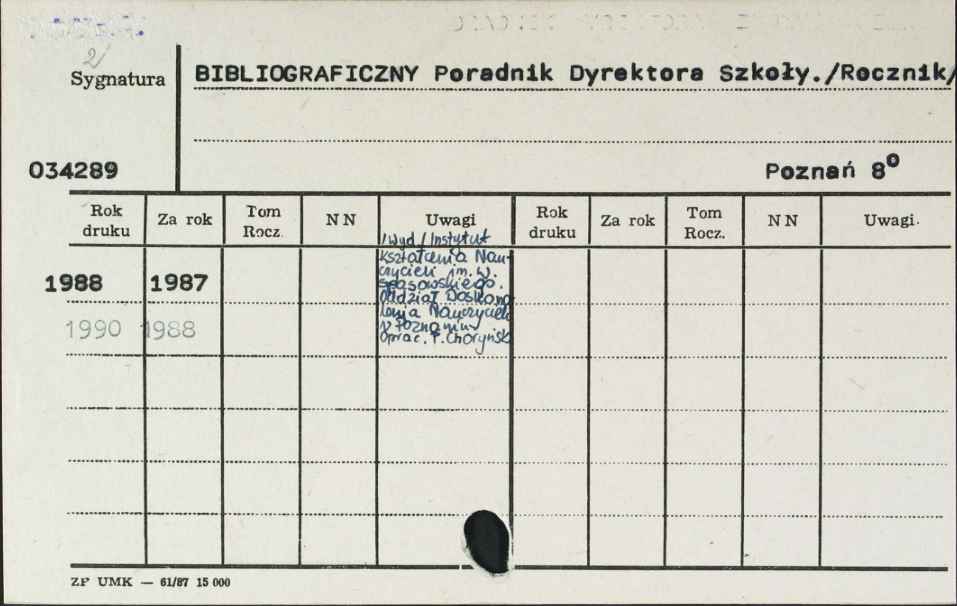 2/
Sygnatura
BIBLIOGRAFICZNY Poradnik Dyrektora Szkoły./Rocznik/
034289
Poznań 8o
Rok druku Za rok Tom Rocz. N N Uwagi Rok druku Za rok Tom Rocz. N N Uwagi.
/Wyd/Instytut
Kształcenia Nau-
czycieli im. W.
Spasowskiego.
Oddział Doskona
lenia Nauczycieli
w Poznaniu
oprac. T. Choryńsk
1988 1987
1990 1988
ZP UMK — 61/87 15 000